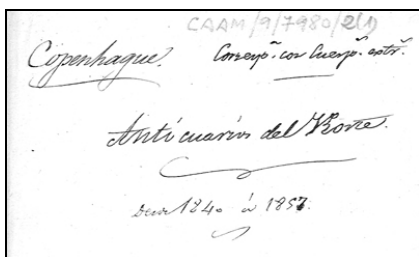 CAAM/9/7980/2(1)
Copenhague. Correspª. con Cuerpª. extrª.
Anticuarios del Norte.
Desde 1840 à 1857.